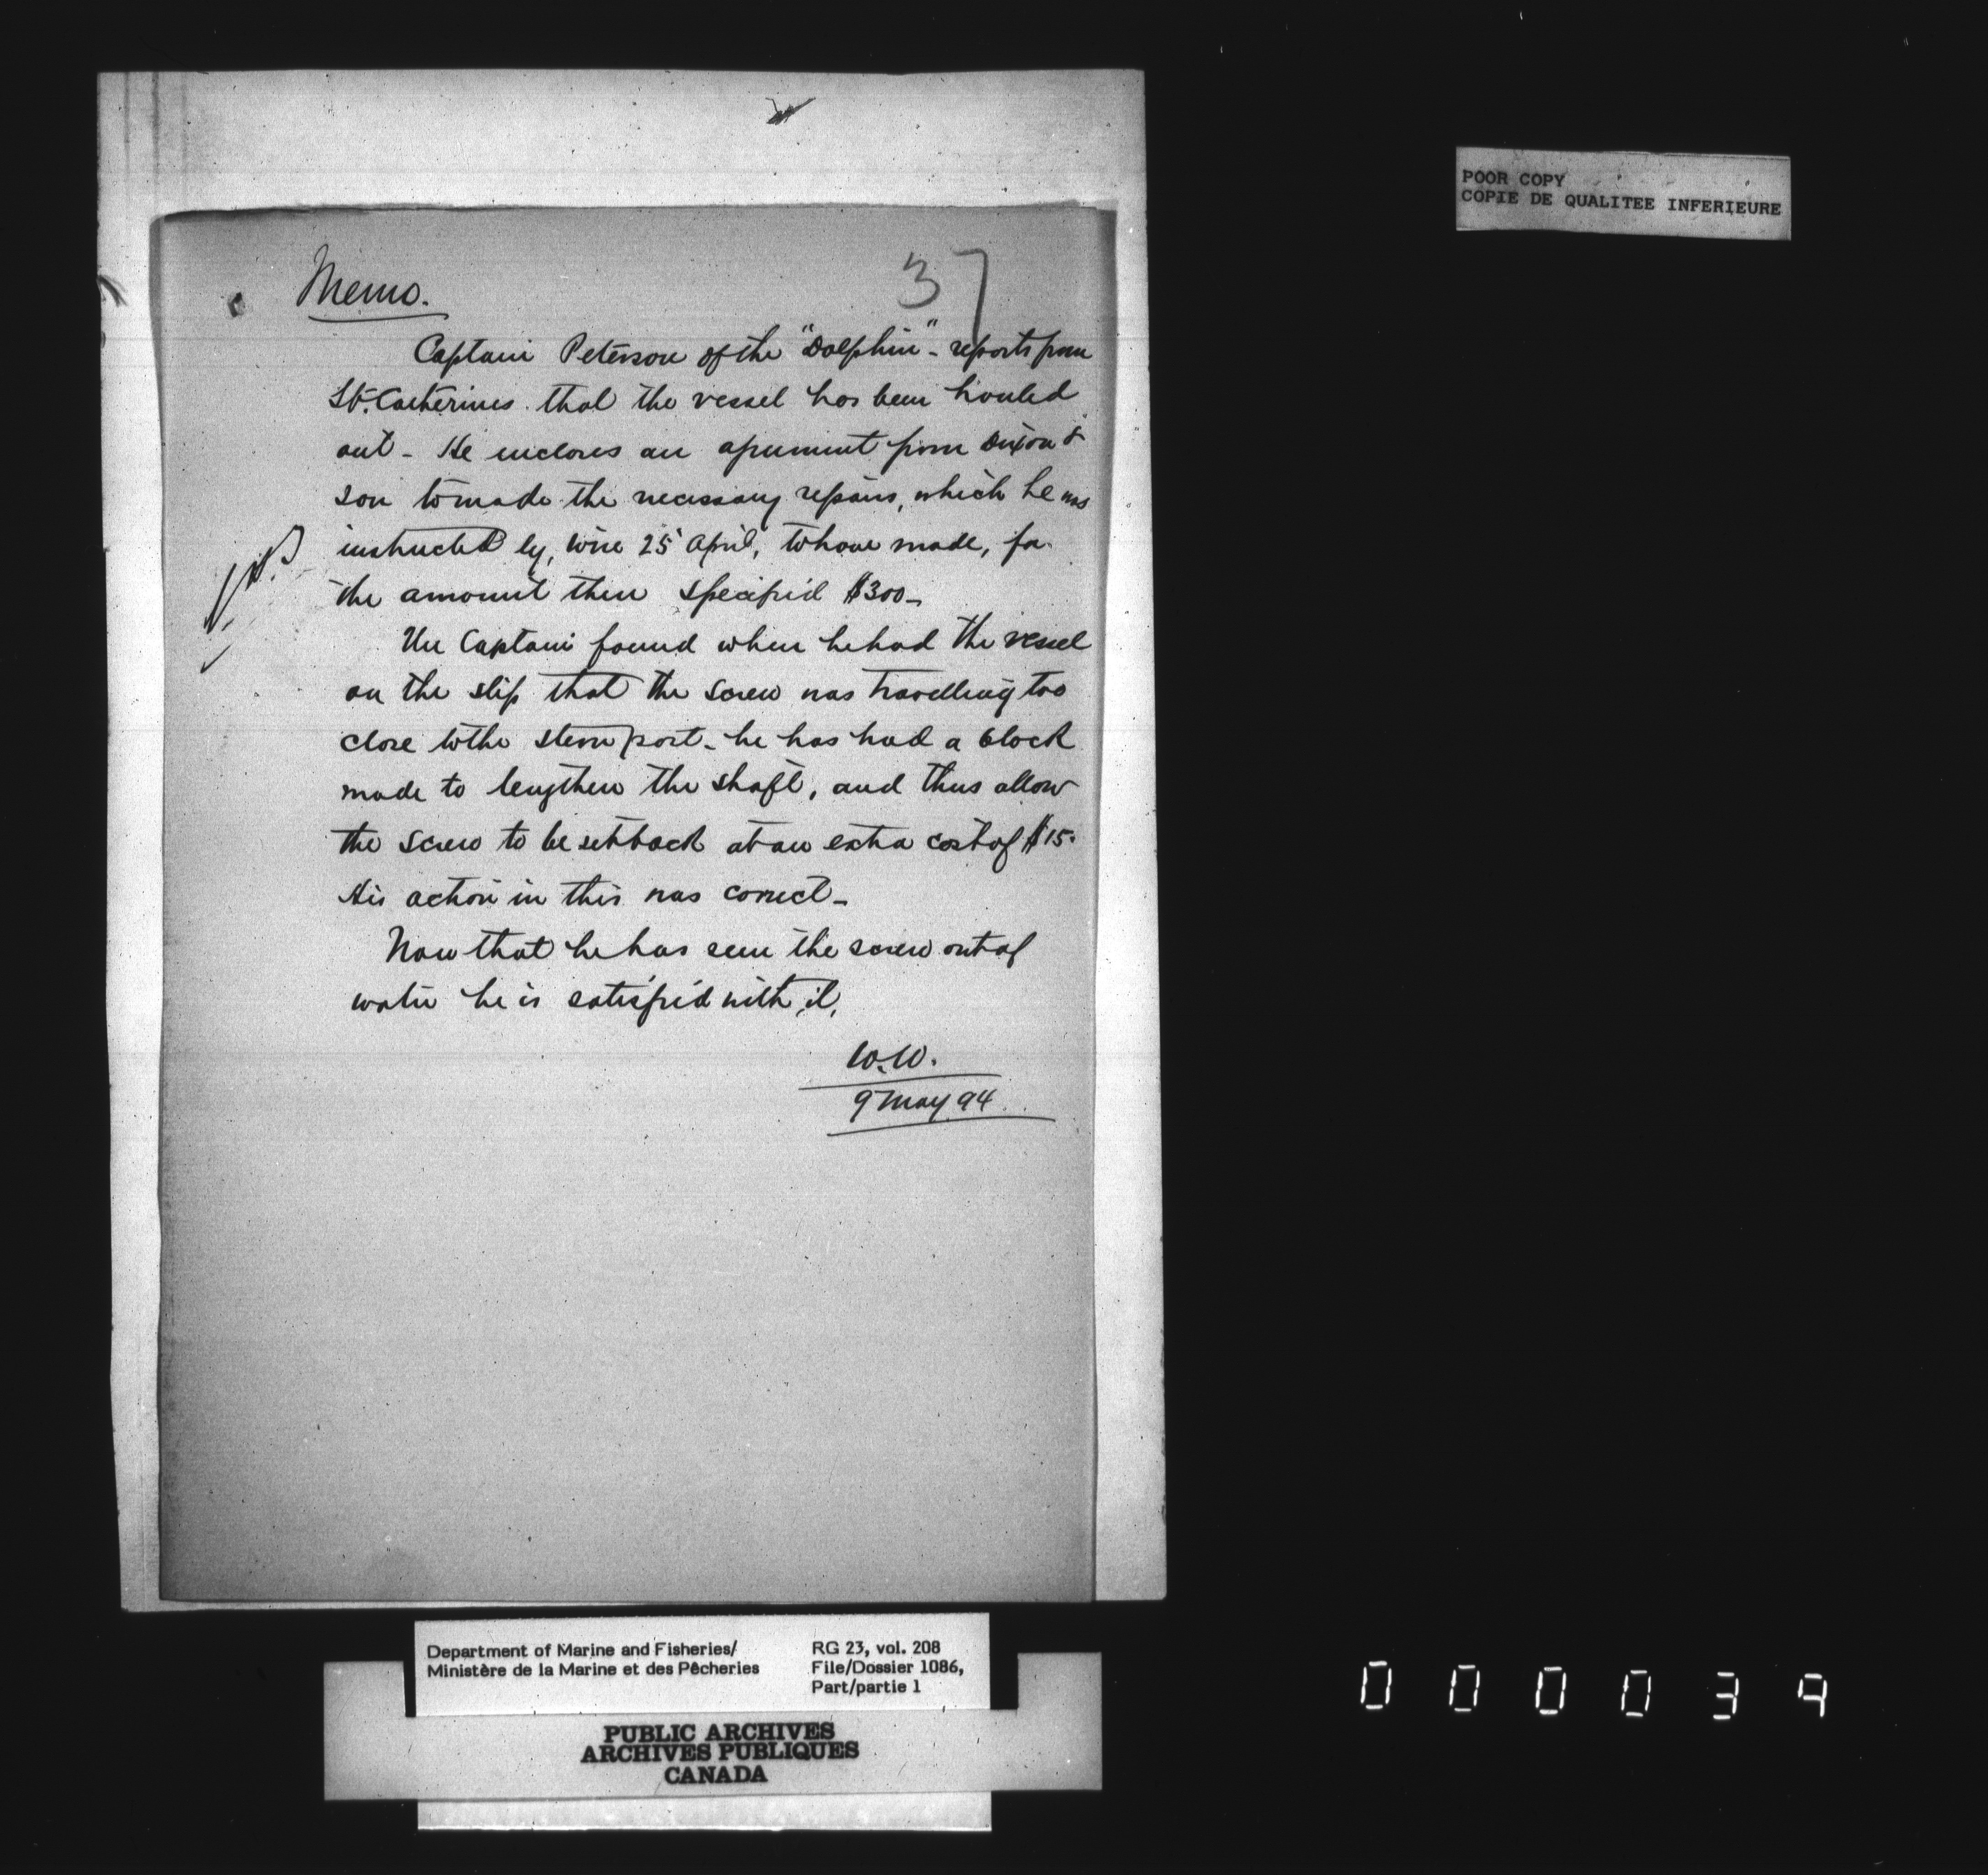 37
Memo.
Captain Peterson of the "Dolphin" - reports from
St. Catherines that the vessel has been hauled
out - He encloses an agreement from Dixon &
son to made the necessary repairs, which he was
instructed by, wire 25 April, to have made, for
the amount then specified $300 -
The Captain found when he had the vessel
on the slip that the screw was travelling too
close to the stern post - he has had a block
made to lengthen the shaft, and thus allow
the screw to be set back at an extra cost of $15.
His action in this was correct -
Now that he has seen the screw out of
water he is satisfied with it.
W.W.
9 May 94
POOR COPY
COPIE DE QUALITEE INFERIEURE
Department of Marine and Fisheries/
Ministère de la Marine et des Pêcheries
RG 23, vol. 208
File/Dossier 1086,
Part/partie 1
PUBLIC ARCHIVES
ARCHIVES PUBLIQUES
CANADA
000039